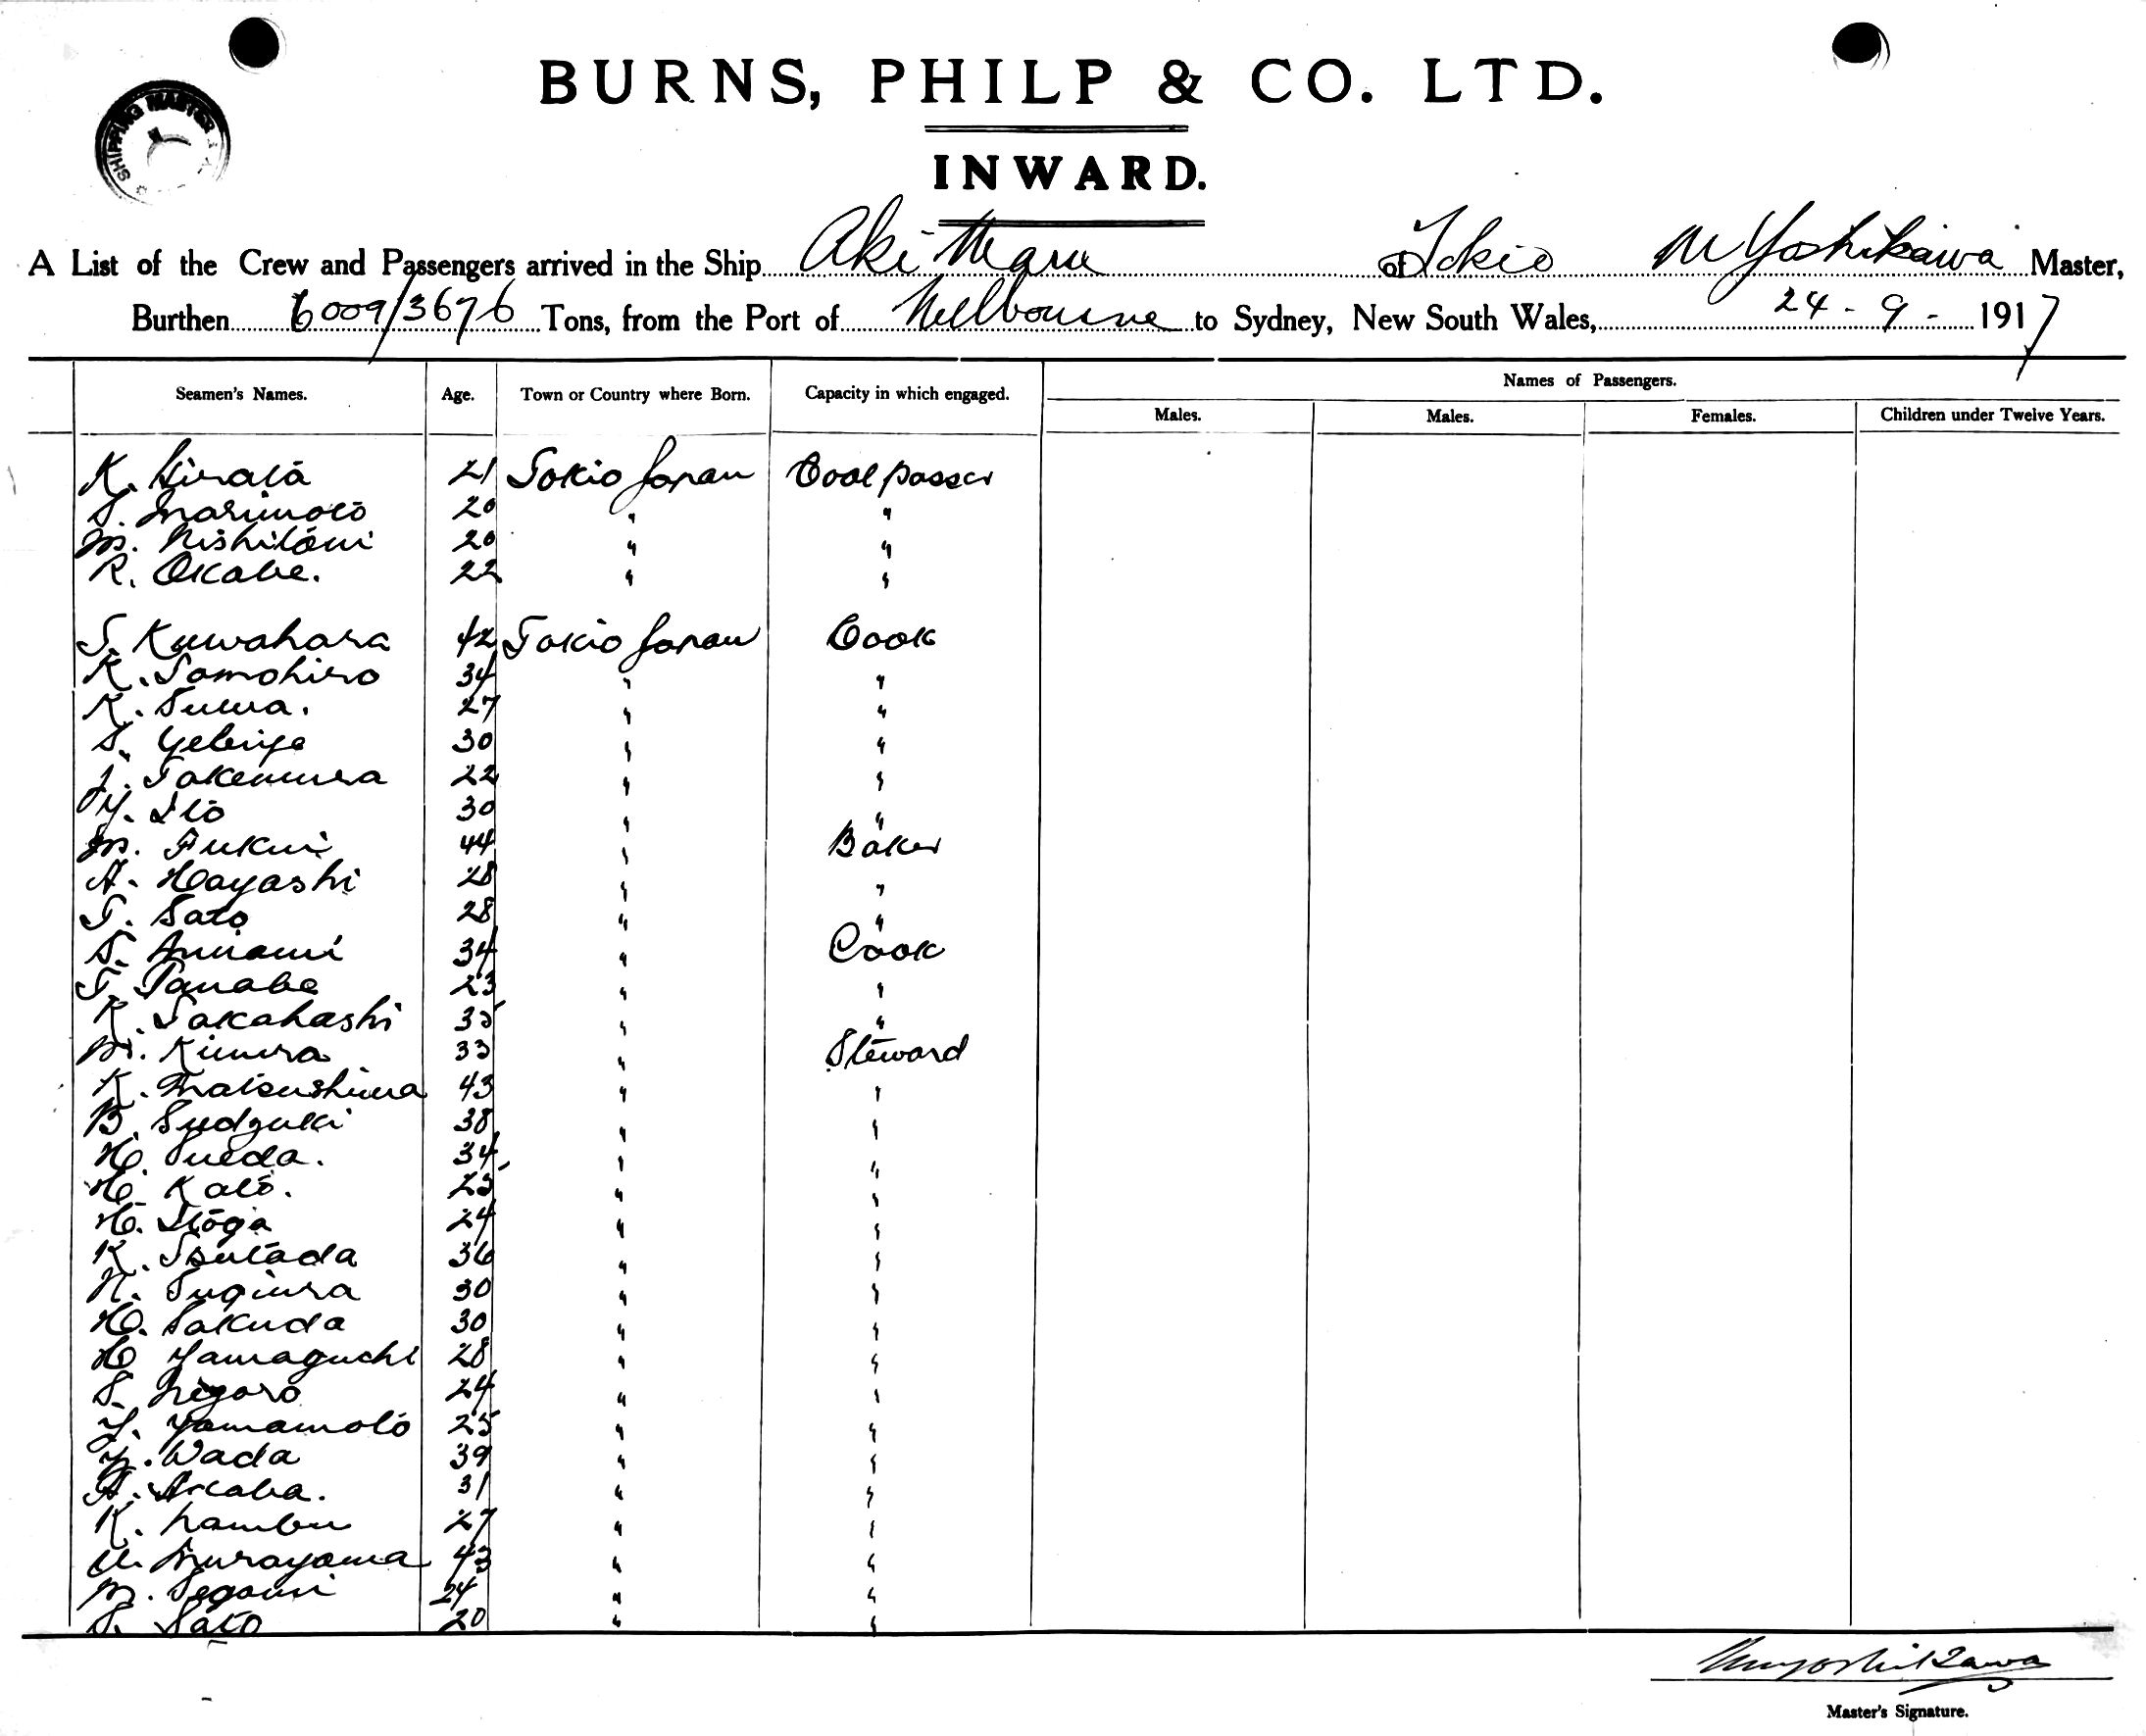 BURNS, PHILP & CO. LTD.
SHIPPING MASTER
INWARD.
A List of the Crew and Passengers arrived in the Ship Aki Maru of Tokio M Yoshikawa Master,
Burthen 6009/3676 Tons, from the Port of Melbourne to Sydney, New South Wales, 24-9-1917
Names of Passengers.
Seamen's Names. Age. Town or Country where Born. Capacity in which engaged. Males. Males. Females. Children under Twelve Years.
K. Hirata 21 Tokio Japan Coal passer
S. Marimoto 20 " "
M. Nishitani 20 " "
R. Okabe. 22 " "
S. Kuwahara 42 Tokio Japan Cook
K. Tomohiro 34 " "
K. Suwa. 27 " "
S. 30 " "
J. Takemura 22 " "
Y. Ito 30 " "
M. Fukui 44 " Baker
A. Hayashi 28 " "
T. Sato 28 " "
S. 34 " Cook
T. Tanabe 23 " "
K. Takahashi 35 " "
M. Kimura 33 " Steward
K. Matsushima 43 " "
B. Sudzuki 38 " "
H. Sueda. 34 " "
H. Kato. 25 " "
H. Itoga 24 " "
K. Tsutada 36 " "
N. Sugiura 30 " "
H. Sakuda 30 " "
H Yamaguchi 28 " "
S. Negoro 24 " "
Y. Yamamoto 25 " "
Y. Wada 39 " "
A. 31 " "
K. Nambu 27 " "
U. Murayama 43 " "
M. Segami 24 " "
S. Sato 20 " "
M Yoshikawa
Master's Signature.